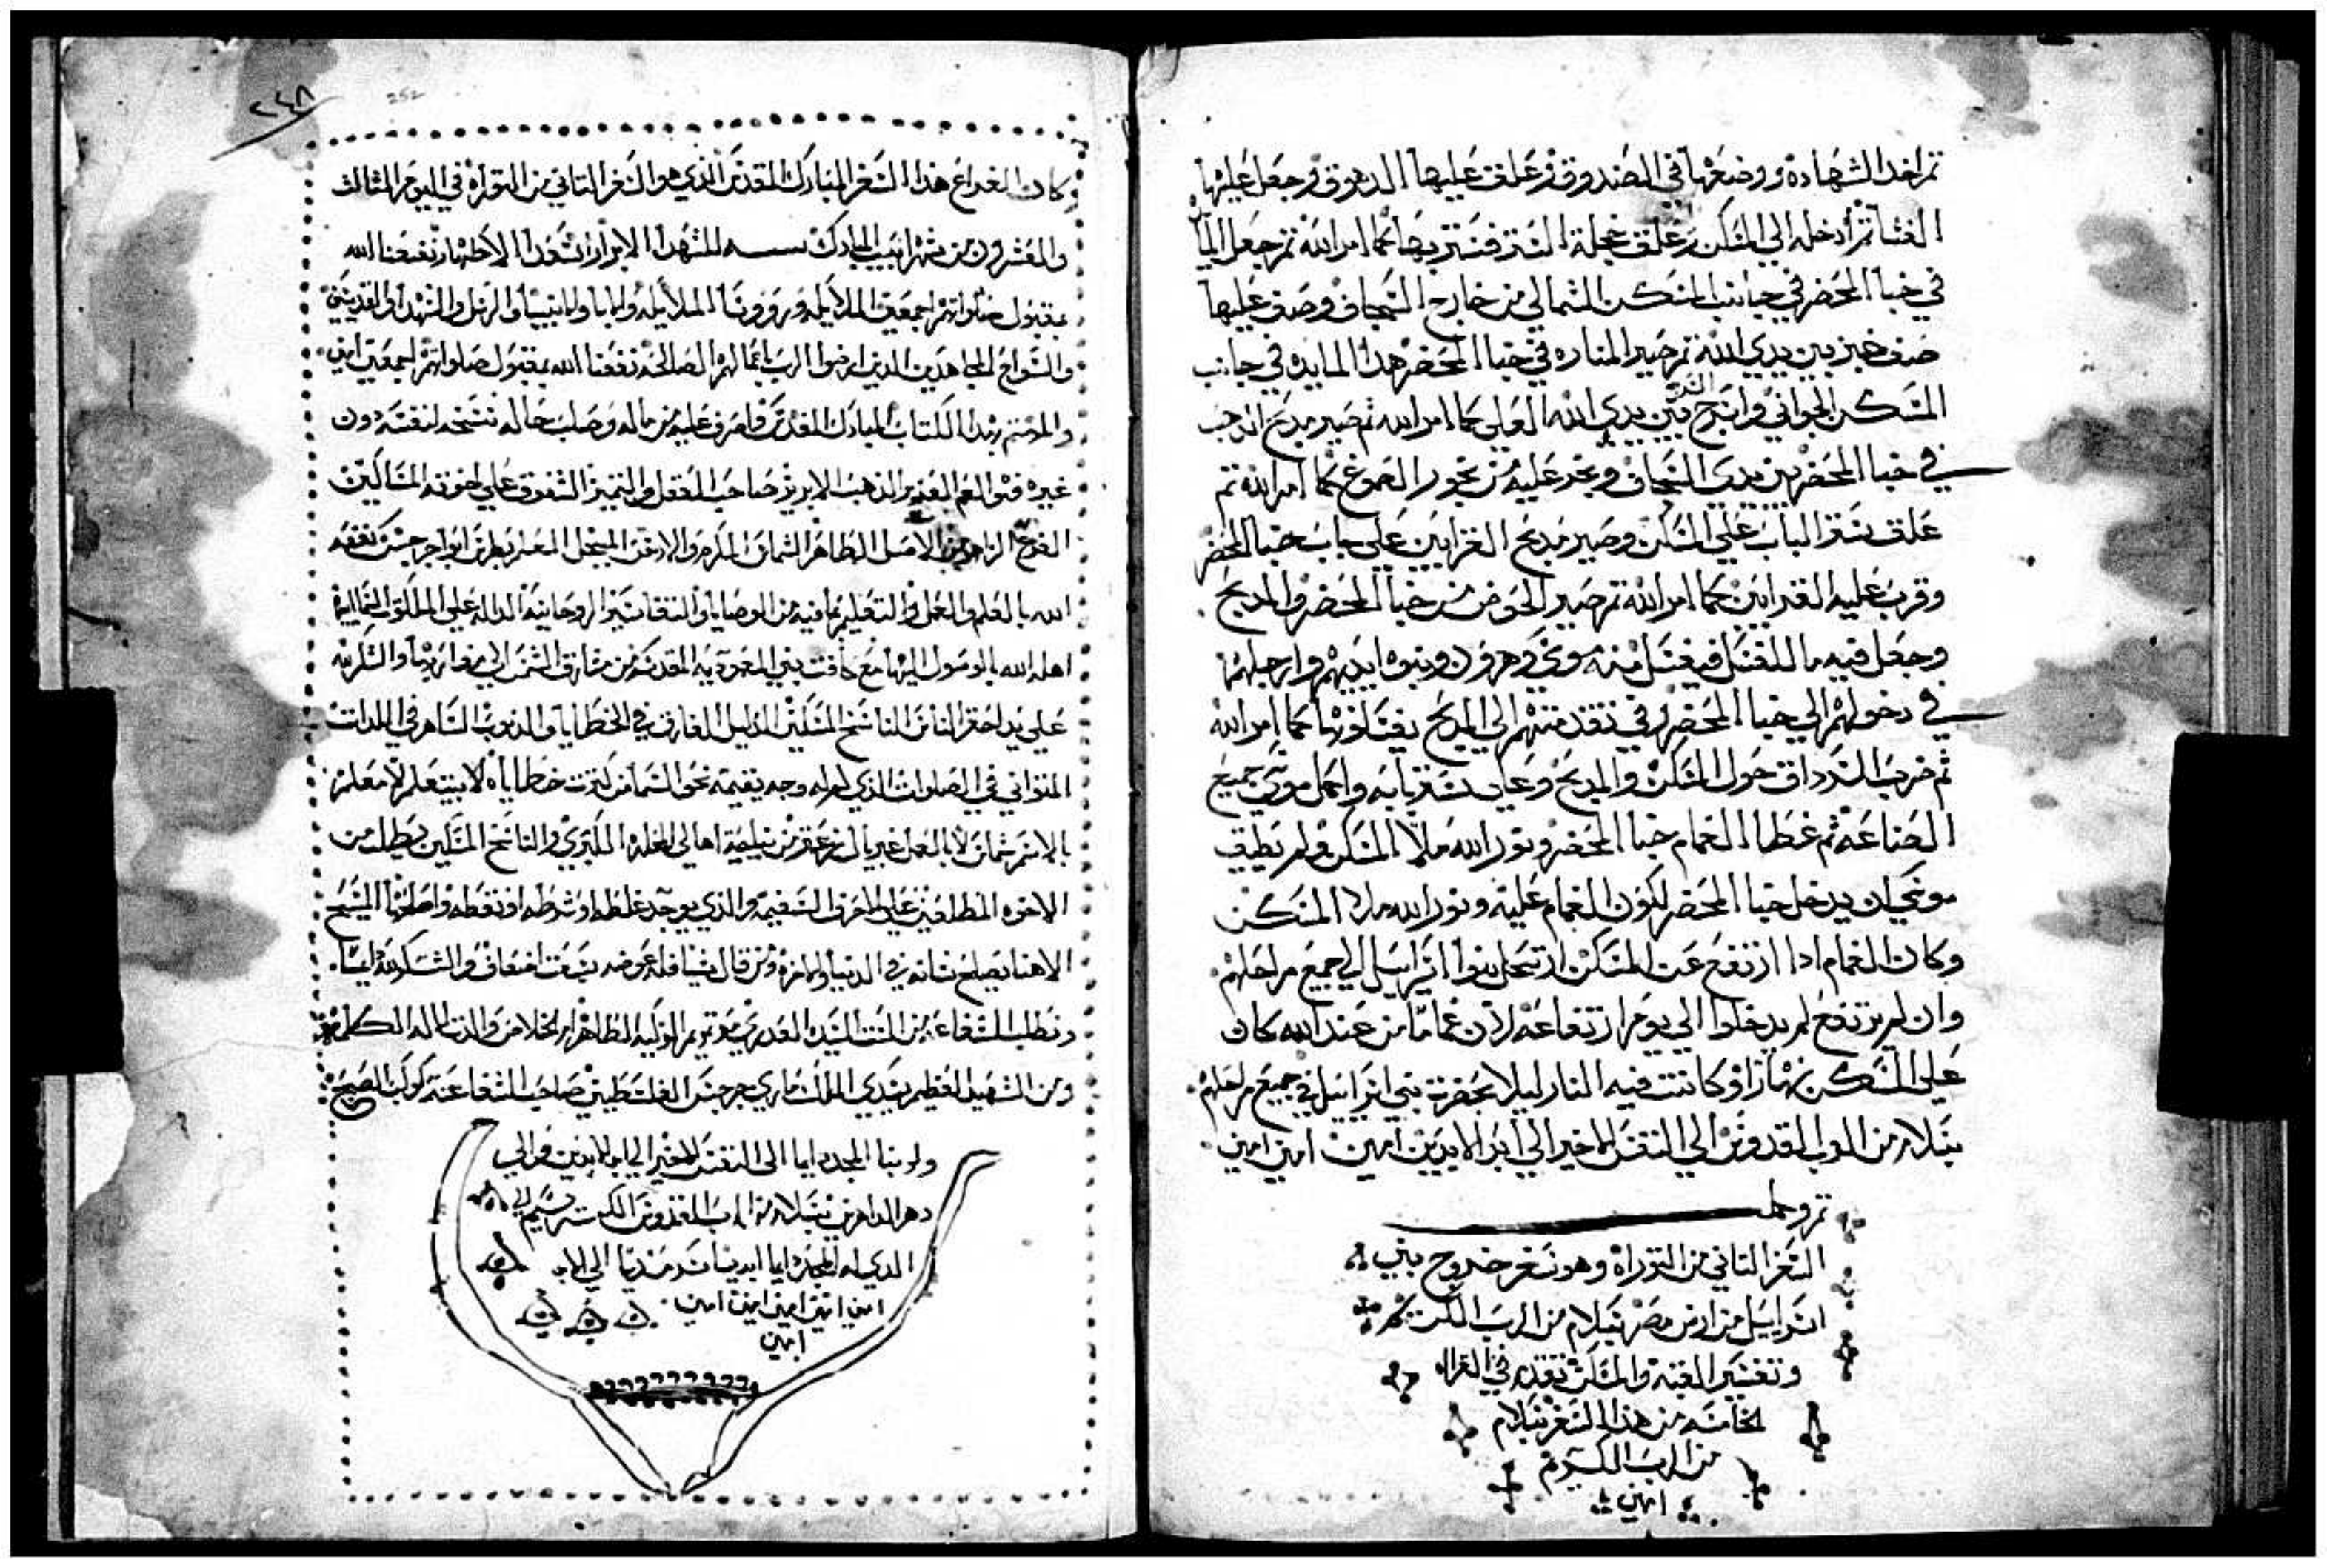 ثم اخد الشهاده ووضعها في الصندوق وعلق عليها الدهوق وجعل عليها
الغشا ثم ادخله الي المسكن وعلق عجلة الستر فستر بها كما امر الله ثم جعل المايده
في خبا المحضر في جانب المسكن الشمالي من خارج السجاف وصف عليها
صف خبز بين يدي الله ثم صير المناره في خبا المحضر هدا المايده في جانب
المسكن الجواني واسرج السرج بين يدي الله العلي كما امر الله ثم صير مدبح الدهب
في خبا المحضر بين يدي السجاف وبخر عليه من بخور الصموغ كما امر الله ثم
علق ستر الباب علي المسكن وصير مدبح القرابين علي باب خبا المحضر
وقرب عليه القرابين كما امر الله ثم صير الحوض من خبا المحضر والمدبح
وجعل فيه ما للغسل فيغسل منه موسي وهرون وبنوه ايديهم وارجلهم
في دخولهم الي خبا المحضر وفي تقدمتهم الي المدبح يغسلونها كما امر الله
ثم ضرب السرداق حول المسكن والمدبح وعلي ستر بابه واكمل موسي جميع
الصناعة ثم غطا الغمام خبا المحضر ونور الله ملا المسكن ولم يطيق
موسي ان يدخل خبا المحضر لكون الغمام عليه ونور الله ملا المسكن
وكان الغمام ادا ارتفع عن المسكن ارتحل بنوا اسراييل الي جميع مراحلهم
وان لم يرتفع لم يرحلوا الي يوم ارتفاعه لان غماما من عند الله كان
علي المسكن نهارا وكانت فيه النار ليلا بحضرة بني اسراييل في جميع مراحلهم
بسلام من الرب القدوس الي النفس الاخير الي ابد الابدين امين امين امين
تم وكمل
السفر التاني من التوراة وهو سفر خروج بني
اسراييل من ارض مصر بسلام من الرب الكريم
وتفسير القبه والمسكن تقدم في القراه
الخامسه من هدا السفر بسلام
من الرب الكريم
امين
٢٤٨
252
وكان الفراغ هذا السفر المبارك المقدس الذي هو السفر التاني من التوراه في اليوم التالت
والعشرون من شهر ابيب المبارك سنه للشهدا الابرار السعدا الاطهار نفعنا الله
بمقبول صلواتهم اجمعين الملايكه وروسا الملايكه والابا والانبيا والرسل والشهدا والقديسين
والسواح المجاهدين الدين ارضوا الرب باعمالهم الصالحه نفعنا الله بمقبول صلواتهم اجمعين امين
والمهتم بهدا الكتاب المبارك المقدس واصرف عليه من ماله وصلب حاله نسخه لنفسه دون
غيره صاحب العقل والتميز المتفوق علي اخوته المسالين
الفرع الزاهر من الاصل الطاهر الشماس المكرم والارخن المبجل المعلم بطرس ابو جرجس نفعه
الله بالعلم والعمل والتعليم بما فيه من الوصايا والتفاسير الروحانيه الداله علي الملكوت السماييه
اهله الله بالوصول اليها مع كافت بني المعموديه المقدسه من مشارق الشمس الي مغاربها والشكر لله
علي يد احقر الناس الناسخ المسكين الدليل الغارق في الخطايا والدنوب الساهر في اللدات
المتواني في الصلوات الذي ليس له وجه يقيمه نحو السما من كترت خطاياه لا بيتعلم لا معلم
بالاسم شماس لا بالعمل والناسخ المسكين يطلب من
الاخوه المطلعين علي الاحرف السقيمه والذي يوجد غلطه او شرطه او نقطه واصلحها المسيح
الاهنا يصلح شانه في الدنيا والاخره ومن قال شيا فله عوضه سبعت اضعاف والشكر لله دايما
ونطلب الشفاعه من الست السيده العدري مرتمريم الزكيه الطاهره ام الخلاص والدت الاله الكلمه
ومن الشهيد العظيم سيدي الملك ماري جرجس الفلسطيني صاحب الشفاعة كوكب الصبح
ولربنا المجد دايما الي النفس الاخير الي ابد الابدين والي
دهر الداهرين بسلام من الرب القدوس
الدي له المجد دايما ابديا سرمديا الي الابد
امين امين امين امين امين
امين